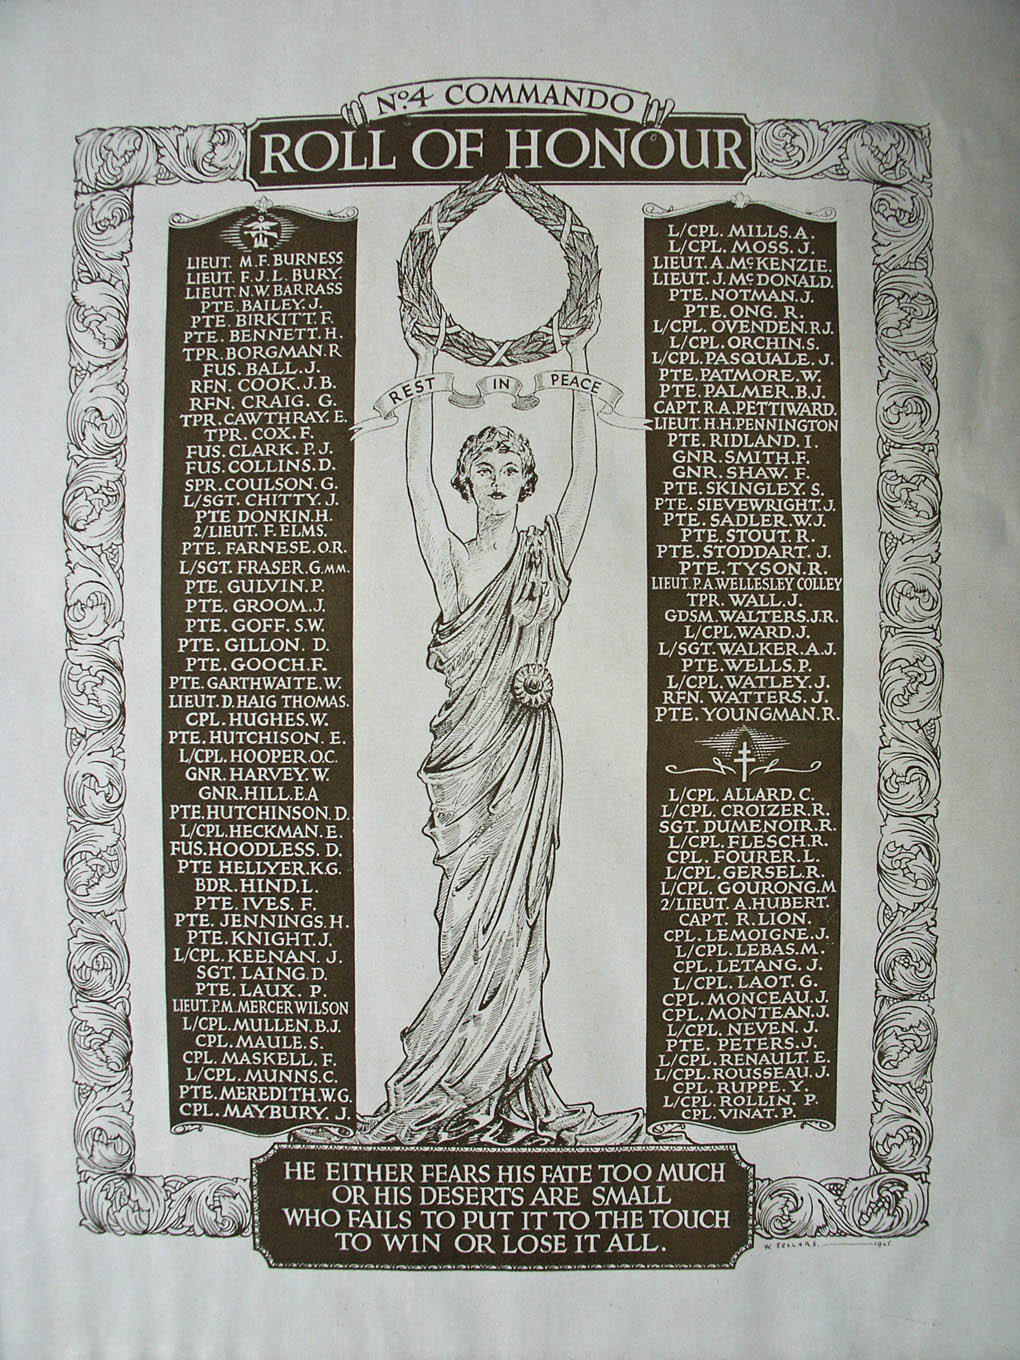 No.4 COMMANDO
ROLL OF HONOUR
LIEUT. M.F. BURNESS
LIEUT. F.J.L. BURY.
LIEUT. N.W. BARRASS
PTE. BAILEY. J.
PTE. BIRKITT. F.
PTE. BENNETT. H.
TPR. BORGMAN. R
FUS. BALL. J.
RFN. COOK. J.B.
RFN. CRAIG. G.
TPR. CAWTHRAY. E.
TPR. COX. F.
FUS. CLARK. P.J.
FUS. COLLINS. D.
SPR. COULSON. G.
L/SGT. CHITTY. J.
PTE DONKIN. H.
2/LIEUT. F. ELMS.
PTE. FARNESE. O.R.
L/SGT. FRASER. G. MM.
PTE. GULVIN. P.
PTE. GROOM. J.
PTE. GOFF. S.W.
PTE. GILLON. D.
PTE. GOOCH. F.
PTE. GARTHWAITE. W.
LIEUT. D. HAIG THOMAS.
CPL. HUGHES. W.
PTE. HUTCHISON. E.
L/CPL. HOOPER. O.C.
GNR. HARVEY. W.
GNR. HILL. E.A
PTE. HUTCHINSON. D.
L/CPL. HECKMAN. E.
FUS. HOODLESS. D.
PTE HELLYER. K.G.
BDR. HIND. L.
PTE. IVES. F.
PTE. JENNINGS. H.
PTE. KNIGHT. J.
L/CPL. KEENAN. J.
SGT. LAING. D.
PTE. LAUX. P.
LIEUT. P.M. MERCER WILSON
L/CPL. MULLEN. B.J.
CPL. MAULE. S.
CPL. MASKELL. F.
L/CPL. MUNNS. C.
PTE. MEREDITH. W.G.
CPL. MAYBURY. J.
REST IN PEACE
L/CPL. MILLS. A.
L/CPL. MOSS. J.
LIEUT. A. McKENZIE.
LIEUT. J. McDONALD.
PTE. NOTMAN. J.
PTE. ONG. R.
L/CPL. OVENDEN. R.J.
L/CPL. ORCHIN. S.
L/CPL. PASQUALE. J.
PTE. PATMORE. W.
PTE. PALMER. B.J.
CAPT. R.A. PETTIWARD.
LIEUT. H.H. PENNINGTON
PTE. RIDLAND. I.
GNR. SMITH. F.
GNR. SHAW. F.
PTE. SKINGLEY. S.
PTE. SIEVEWRIGHT. J.
PTE. SADLER. W.J.
PTE. STOUT. R.
PTE. STODDART. J.
PTE. TYSON. R.
LIEUT. P.A. WELLESLEY COLLEY
TPR. WALL. J.
GDSM. WALTERS. J.R.
L/CPL. WARD. J.
L/SGT. WALKER. A.J.
PTE. WELLS. P.
L/CPL. WATLEY. J.
RFN. WATTERS. J.
PTE. YOUNGMAN. R.
L/CPL. ALLARD. C.
L/CPL. CROIZER. R.
SGT. DUMENOIR. R.
L/CPL. FLESCH. R.
CPL. FOURER. L.
L/CPL. GERSEL. R.
L/CPL. GOURONG. M
2/LIEUT. A. HUBERT.
CAPT. R. LION.
CPL. LEMOIGNE. J.
L/CPL. LEBAS. M.
CPL. LETANG. J.
L/CPL. LAOT. G.
CPL. MONCEAU. J.
CPL. MONTEAN. J.
L/CPL. NEVEN. J.
PTE. PETERS. J.
L/CPL. RENAULT. E.
L/CPL. ROUSSEAU. J.
CPL. RUPPE. Y.
L/CPL. ROLLIN. P.
CPL. VINAT. P.
HE EITHER FEARS HIS FATE TOO MUCH
OR HIS DESERTS ARE SMALL
WHO FAILS TO PUT IT TO THE TOUCH
TO WIN OR LOSE IT ALL.
W. SELLARS.